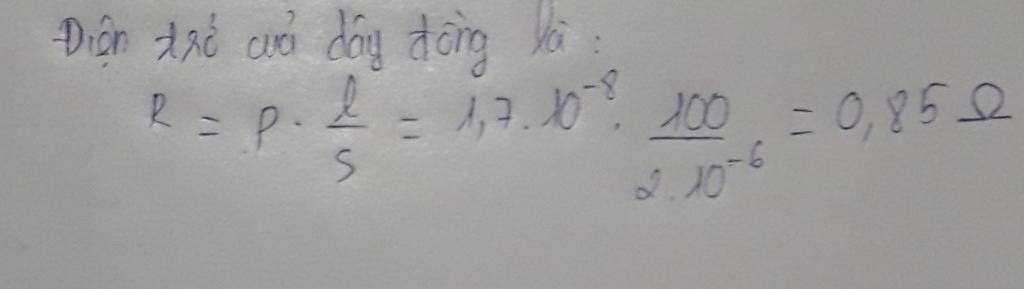 Điện trở của dây đồng là :
R = ρ . l/S = 1,7 . 10⁻⁸ . 100/2 . 10⁻⁶ = 0,85 Ω